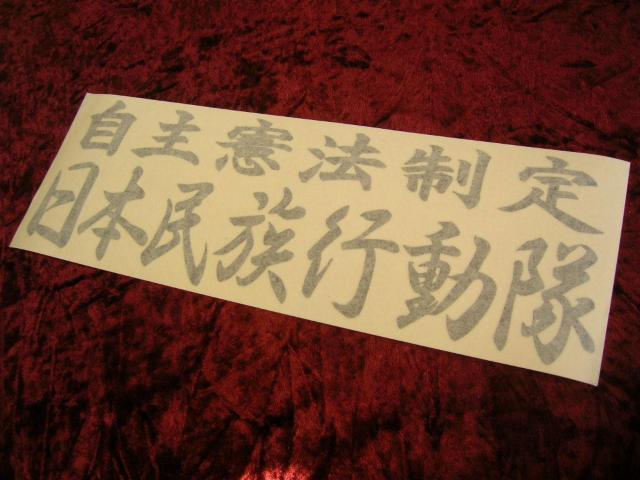 自主憲法制定
日本民族行動隊